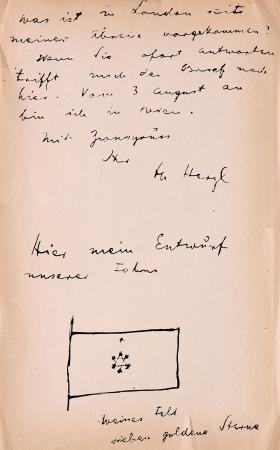 was ist in London seits
meiner Abreise vorgekommen?
Wenn Sie sofort antworten
trifft mich der Brief noch
hier. Vom 3 August an
bin ich in Wien.
Mit Zionsgruss
Ihr
Th Herzl
Hier mein Entwurf
unserer Fahne
Weisses Feld
sieben goldene Sterne